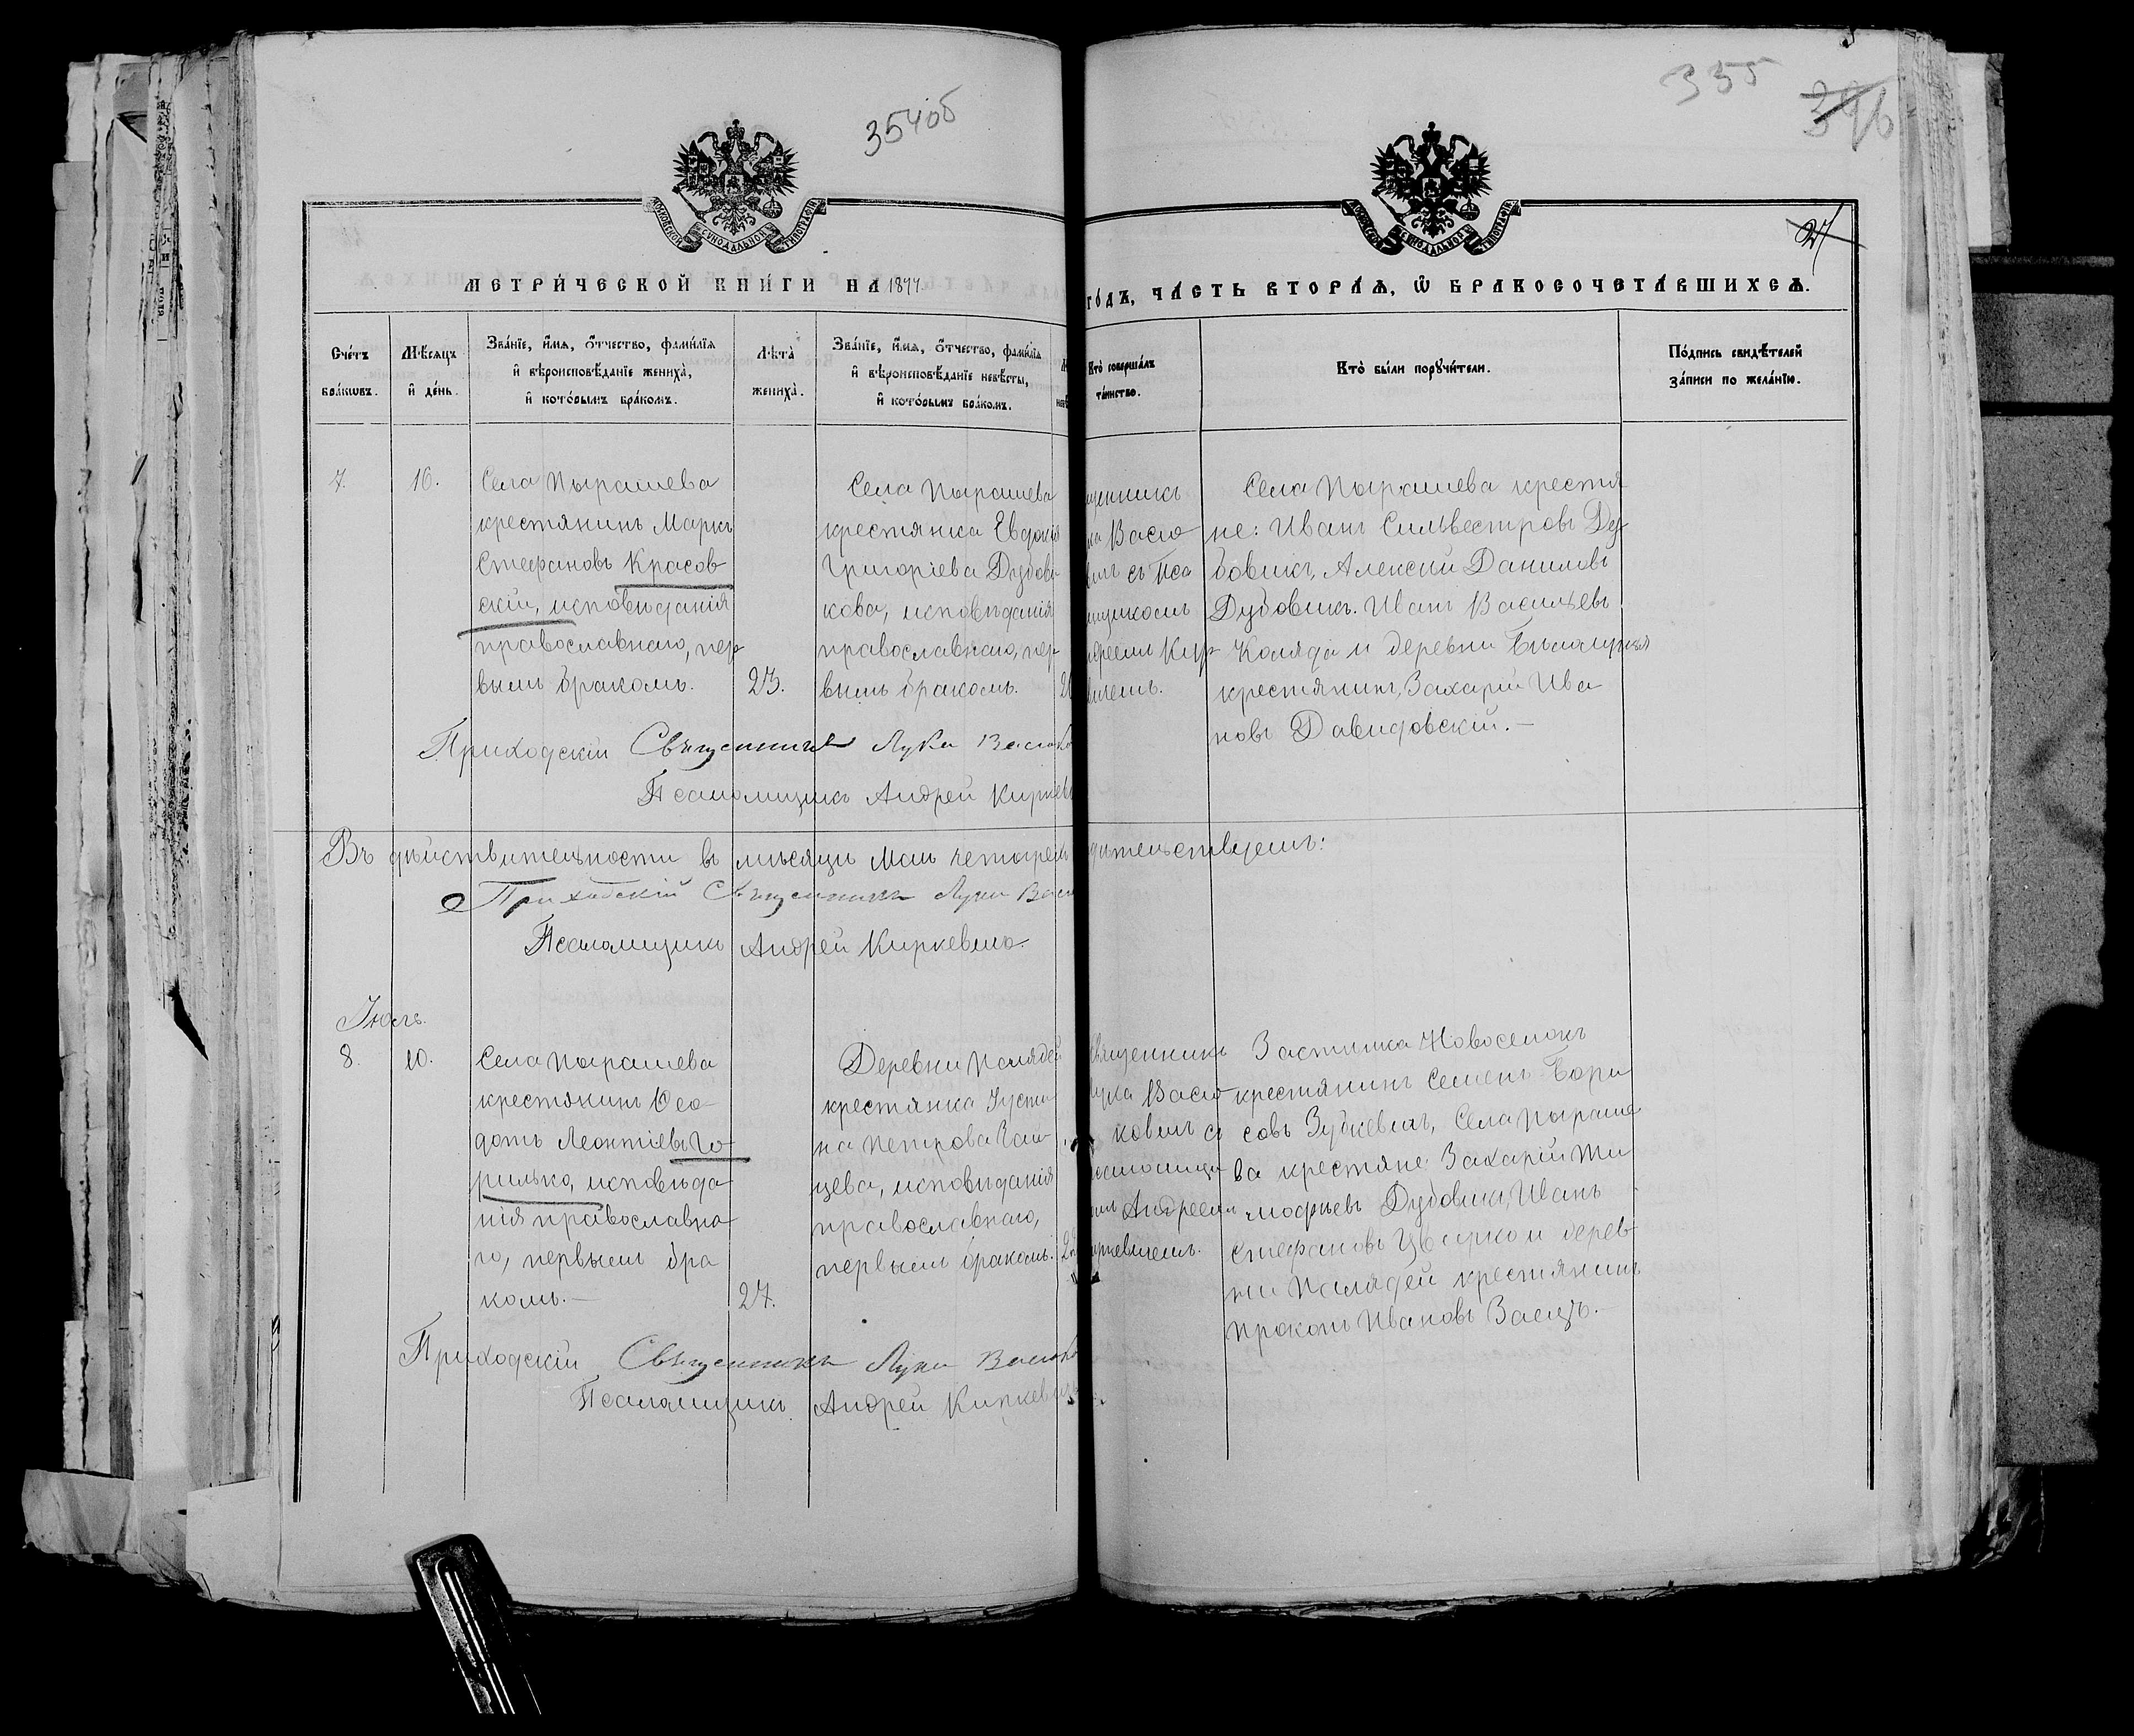 354об
355
396
27
МОСКОВСКОЙ СѴНОДАЛЬНОЙ ТИПОГРАФІИ
МОСКОВСКОЙ СѴНОДАЛЬНОЙ ТИПОГРАФІИ
МЕТРИ́ЧЕСКОЙ КНИ́ГИ НА 1877
ГО́ДЪ, ЧА́СТЬ ВТОРА́Ѧ, Ѿ БРАКОСОЧЕТА́ВШИХСѦ.
Сче́тъ бра́кѡвъ.
Мѣ́сяцъ и҆ де́нь.
Зва́нїе, и҆́мя, ѻ҆́тчество, фами́лїя
и҆ вѣроисповѣ́данїе жениха̀,
и҆ кото́рымъ бра́комъ.
Лѣ́та̀ жениха̀.
Зва́нїе, и҆́мя, ѻ҆́тчество, фами́лїя
и҆ вѣроисповѣ́данїе невѣ́сты,
и҆ кото́рымъ бра́комъ.
Кто̀ соверша́лъ
та́инство.
Кто̀ бы́ли порꙋчи́тели.
По́дпись свидѣ́телей
за́писи по жела́нїю.
7.
10.
Села Пырашева
крестянинъ Маркъ
Стефановъ Красов
скій, исповѣданія
православнаго, пер
вымъ бракомъ.
23.
Села Пырашева
крестянка Евдокія
Григоріева Дубови
кова, исповѣданія
православнаго, пер
вымъ бракомъ.
щенникъ
ка Васю
вичъ съ Пса
мщикомъ
дреемъ Кир
вичемъ.
Села Пырашева крестя
не: Иванъ Сильвестровъ Ду
бовикъ, Алексій Даниловъ
Дубовикъ. Иванъ Васильевъ
Коляда и деревни
крестянинъ Захарій Ива
новъ Давидовскій.—
Приходскій Священникъ Лука Васюко
Псаломщикъ Андрей Киркеви
Въ дѣйствительности въ мѣсяцѣ Маѣ четырехъ
дительствуемъ:
Приходскій Священникъ Лука Васю
Псаломщикъ Андрей Киркевичъ.
Іюль.
8.
10.
Села Пырашева
крестянинъ Ѳео
дотъ Леонтіевъ Го
рилько, исповѣда
нія православна
го, первымъ бра
комъ.—
27.
Деревни Полядей
крестянка Іусти
на Петрова Заи
цева, исповѣданія
православнаго,
первымъ бракомъ.
вященникъ
ука Васю
ковичъ съ
саломщи
мъ Андреемъ
иркевичемъ.
Застѣнка Новоселокъ
крестянинъ Семенъ Бори
совъ Зубкевичъ, Села Пыраше
ва крестяне: Захарій Ти
мофѣевъ Дубовикъ, Иванъ
Стефановъ Цвирко и дерев
ни Полядей крестянинъ
Прокопъ Ивановъ Заецъ.—
Приходскій Священникъ Лука Васюко
Псаломщикъ Андрей Киркевичъ.